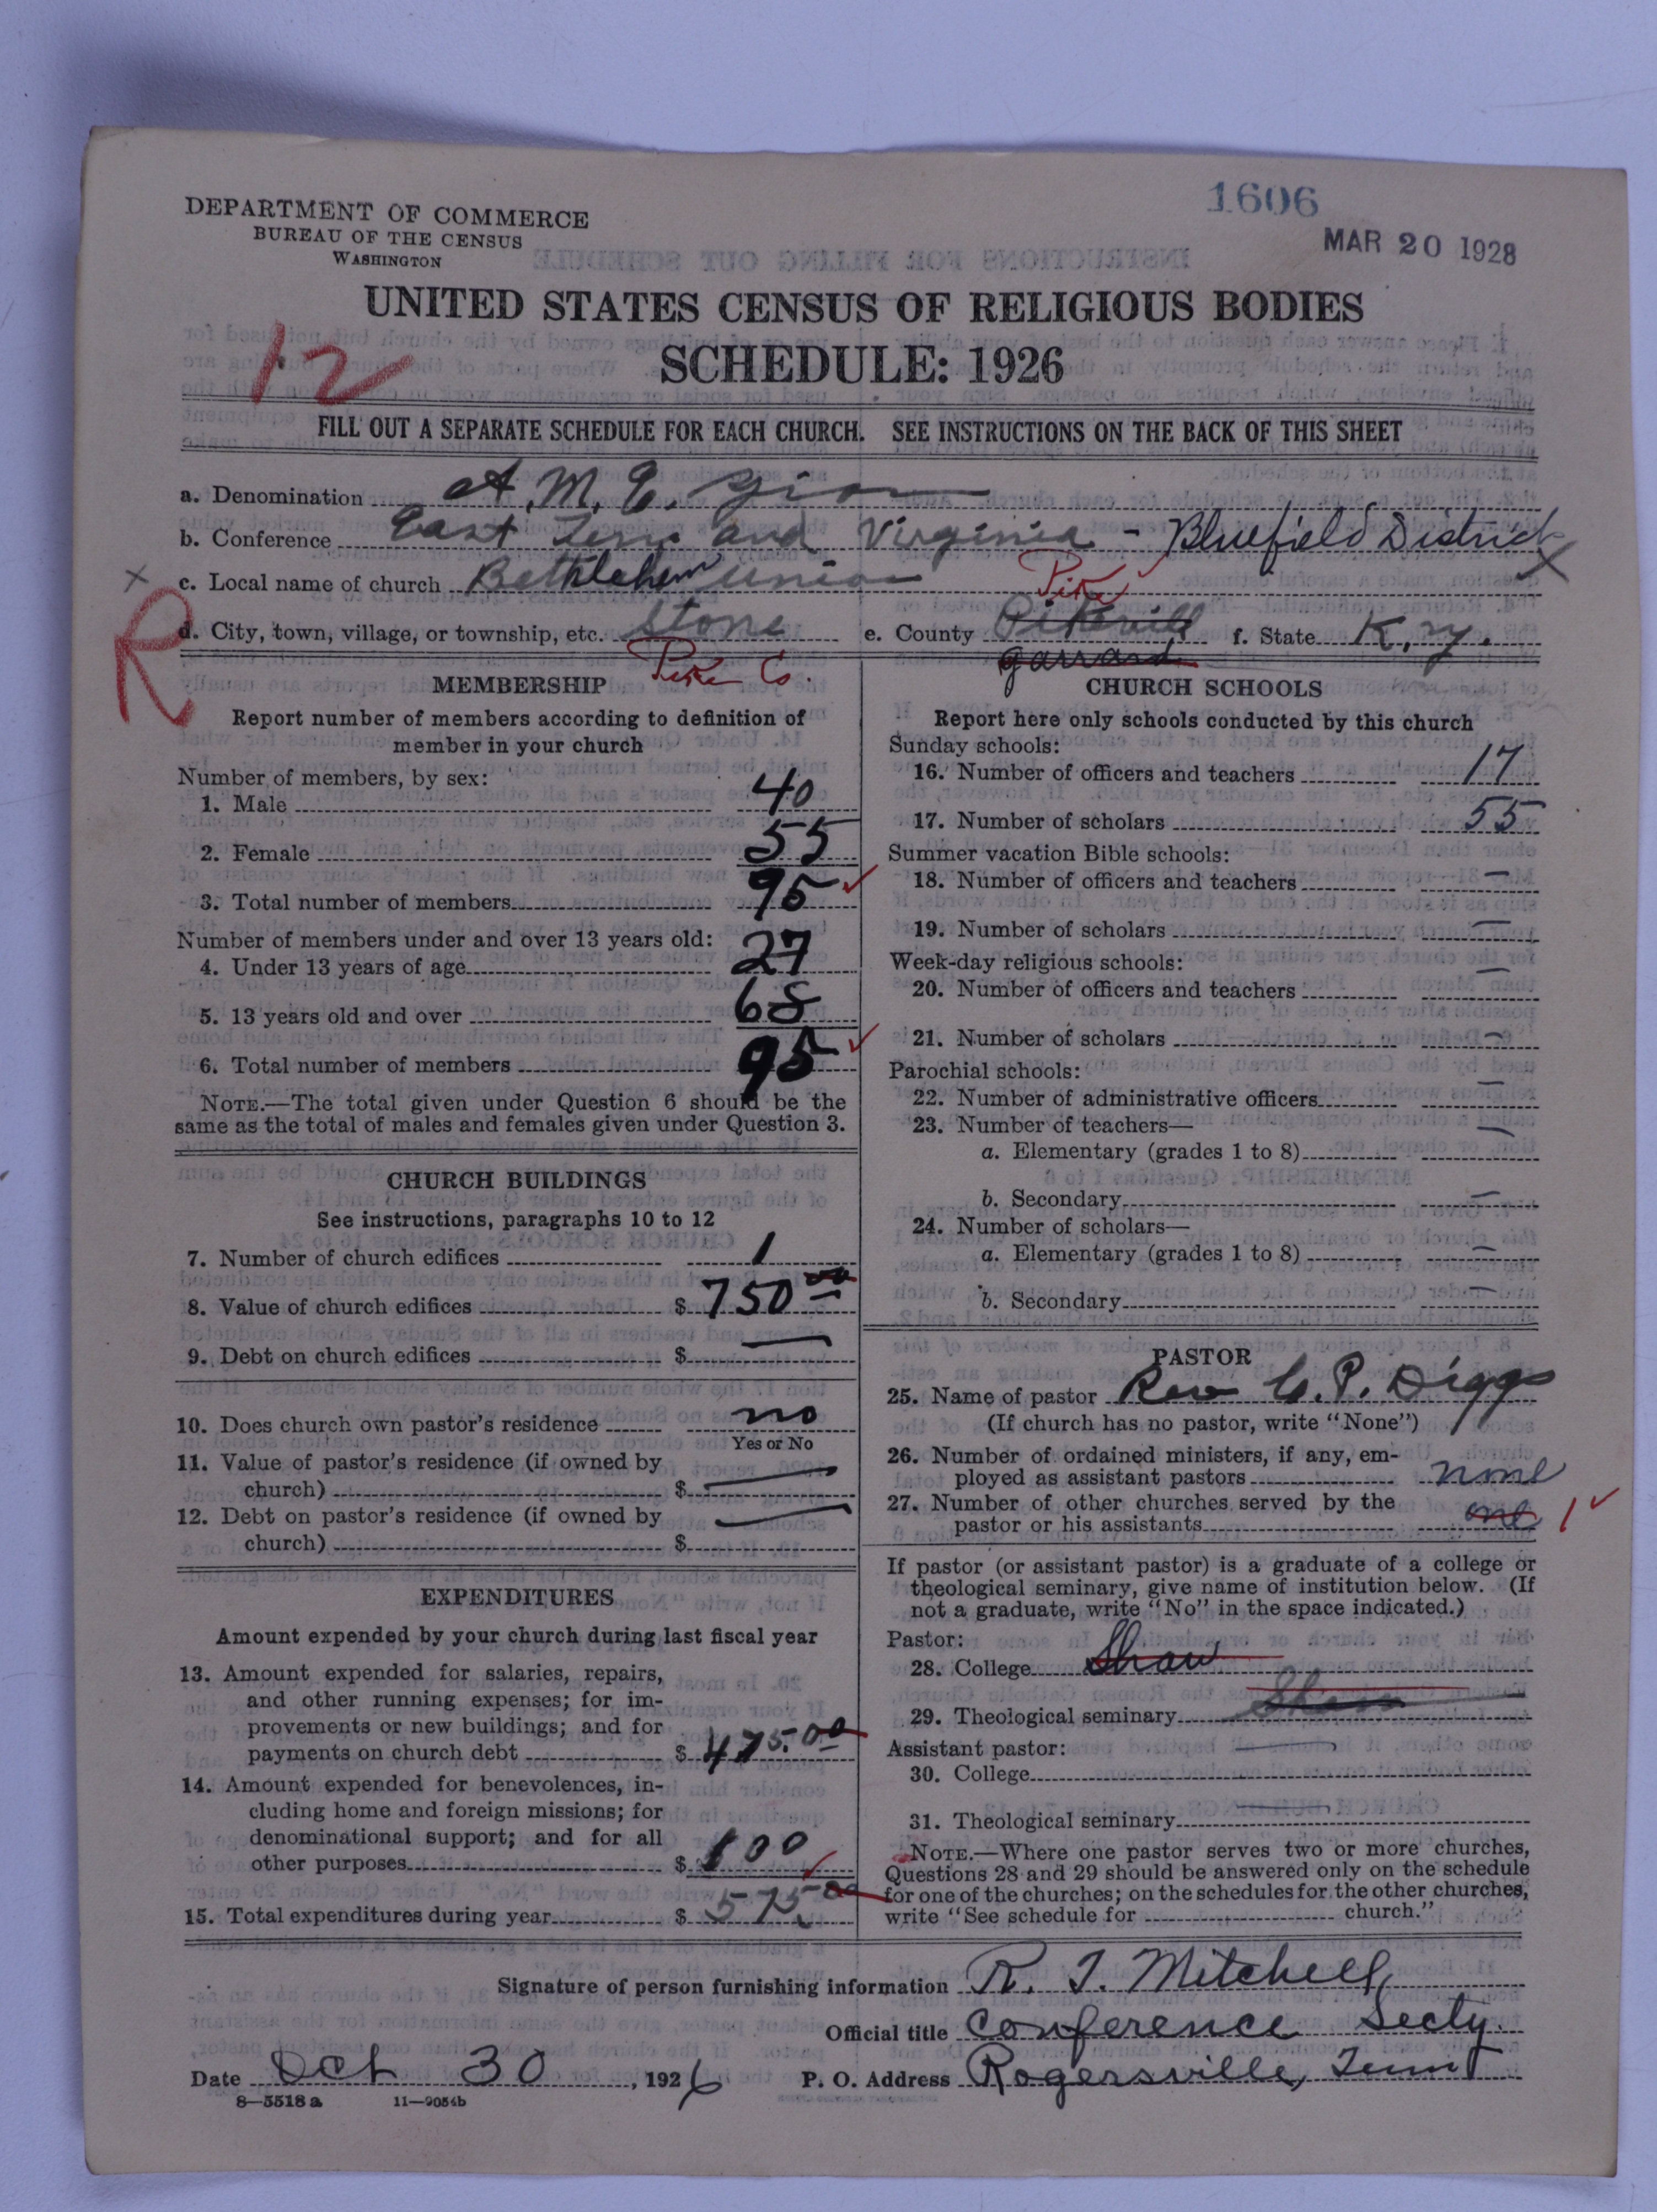 1606
MAR 20 1928
DEPARTMENT OF COMMERCE
BUREAU OF THE CENSUS
WASHINGTON
UNITED STATES CENSUS OF RELIGIOUS BODIES
SCHEDULE: 1926
12
FILL OUT A SEPARATE SCHEDULE FOR EACH CHURCH. SEE INSTRUCTIONS ON THE BACK OF THIS SHEET
a. Denomination A. M. E. Zion
b. Conference East Tenn. and Virginia - Bluefield District
x c. Local name of church Bethlehem Union X
Pike
R d. City, town, village, or township, etc. Stone e. County Pikevill f. State K, y.
Pike Co. Garrard
MEMBERSHIP
Report number of members according to definition of
member in your church
Number of members, by sex:
1. Male 40
2. Female 55
3. Total number of members 95
Number of members under and over 13 years old:
4. Under 13 years of age 27
5. 13 years old and over 68
6. Total number of members 95
NOTE.—The total given under Question 6 should be the
same as the total of males and females given under Question 3.
CHURCH BUILDINGS
See instructions, paragraphs 10 to 12
7. Number of church edifices 1
8. Value of church edifices $ 750 00
9. Debt on church edifices $ —
10. Does church own pastor's residence no
Yes or No
11. Value of pastor's residence (if owned by
church) $ —
12. Debt on pastor's residence (if owned by
church) $ —
EXPENDITURES
Amount expended by your church during last fiscal year
13. Amount expended for salaries, repairs,
and other running expenses; for im-
provements or new buildings; and for
payments on church debt $ 475.00
14. Amount expended for benevolences, in-
cluding home and foreign missions; for
denominational support; and for all
other purposes $ 100
15. Total expenditures during year $ 575 00
CHURCH SCHOOLS
Report here only schools conducted by this church
Sunday schools:
16. Number of officers and teachers 17
17. Number of scholars 55
Summer vacation Bible schools:
18. Number of officers and teachers —
19. Number of scholars —
Week-day religious schools:
20. Number of officers and teachers —
21. Number of scholars —
Parochial schools:
22. Number of administrative officers —
23. Number of teachers—
a. Elementary (grades 1 to 8) —
b. Secondary —
24. Number of scholars—
a. Elementary (grades 1 to 8) —
b. Secondary —
PASTOR
25. Name of pastor Rev C. P. Diggs
(If church has no pastor, write "None")
26. Number of ordained ministers, if any, em-
ployed as assistant pastors none
27. Number of other churches served by the
pastor or his assistants one 1
If pastor (or assistant pastor) is a graduate of a college or
theological seminary, give name of institution below. (If
not a graduate, write "No" in the space indicated.)
Pastor:
28. College Shaw
29. Theological seminary Shaw
Assistant pastor:
30. College —
31. Theological seminary —
NOTE.—Where one pastor serves two or more churches,
Questions 28 and 29 should be answered only on the schedule
for one of the churches; on the schedules for the other churches,
write "See schedule for church."
Signature of person furnishing information R. J. Mitchell
Official title Conference Secty.
Date Oct 30, 1926 P. O. Address Rogersville, Tenn
8—5518 a 11—9054b